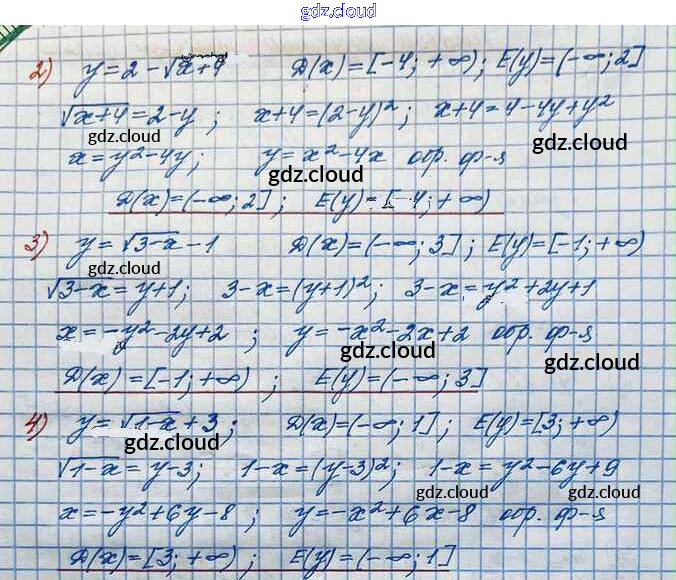 gdz.cloud
gdz.cloud
2) y = 2 - √x+4 D(x) = [-4; +∞); E(y) = (-∞; 2]
√x+4 = 2-y; x+4 = (2-y)²; x+4 = 4-4y+y²
gdz.cloud gdz.cloud gdz.cloud
x = y²-4y; y = x²-4x обр. ф-я
gdz.cloud
D(x) = (-∞; 2]; E(y) = [-4; +∞)
3) y = √3-x - 1 D(x) = (-∞; 3]; E(y) = [-1; +∞)
gdz.cloud
√3-x = y+1; 3-x = (y+1)²; 3-x = y²+2y+1
x = -y²-2y+2; y = -x²-2x+2 обр. ф-я
gdz.cloud gdz.cloud
D(x) = [-1; +∞); E(y) = (-∞; 3]
4) y = √1-x + 3; D(x) = (-∞; 1]; E(y) = [3; +∞)
gdz.cloud
√1-x = y-3; 1-x = (y-3)²; 1-x = y²-6y+9
gdz.cloud gdz.cloud
x = -y²+6y-8; y = -x²+6x-8 обр. ф-я
D(x) = [3; +∞); E(y) = (-∞; 1]
gdz.cloud gdz.cloud